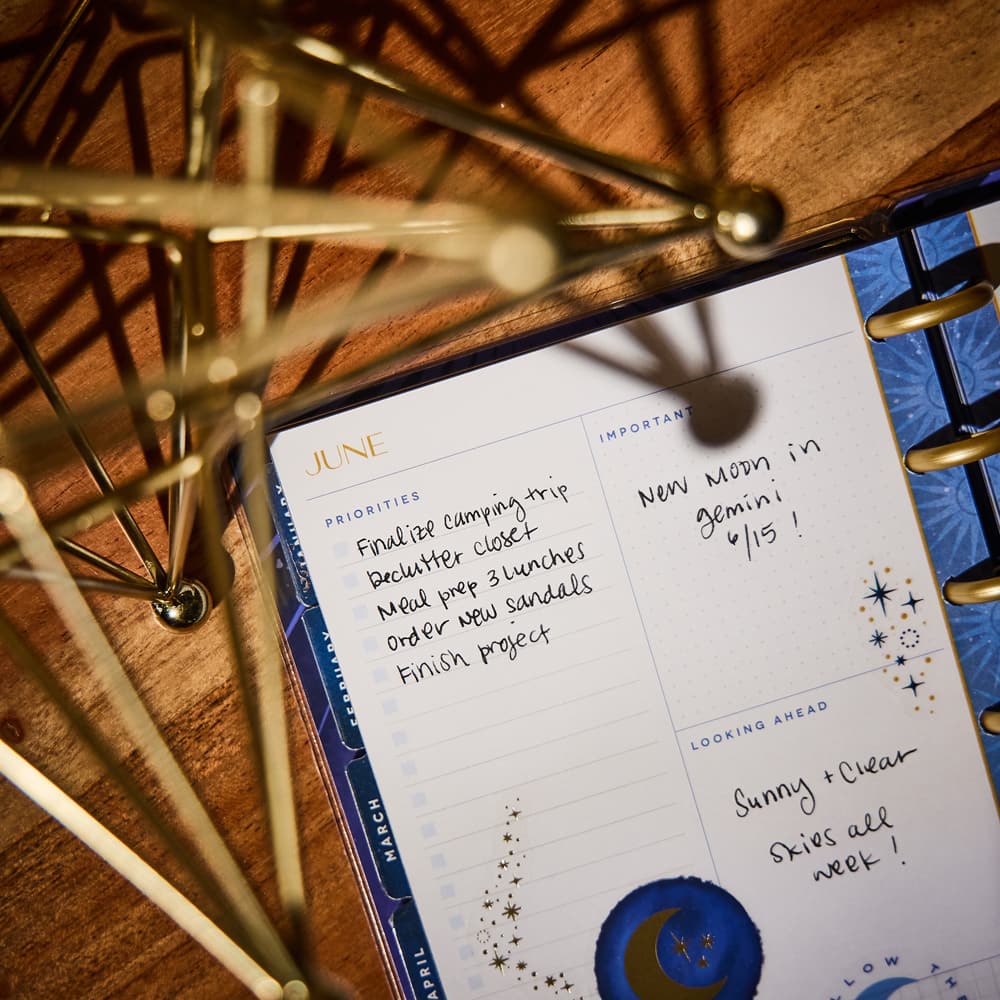 JUNE
PRIORITIES
Finalize camping trip
Declutter closet
Meal prep 3 lunches
order new sandals
Finish project
IMPORTANT
New Moon in
gemini
6/15 !
LOOKING AHEAD
Sunny + Clear
skies all
week !
JANUARY
FEBRUARY
MARCH
APRIL